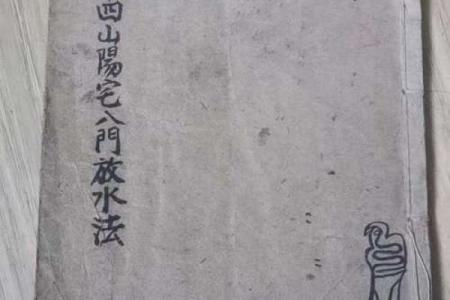 西山陽宅八門放水法